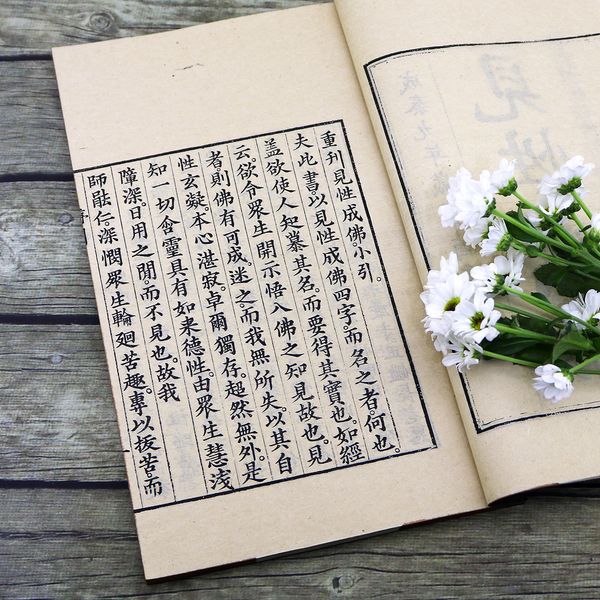 重刊見性成佛小引。
夫此書以見性成佛四字。而名之者。何也。
盖欲使人知慕其名。而要得其實也。如經
云。欲令眾生開示悟入佛之知見故也。見
者則佛有可成。迷之而我無所失。以其自
性玄凝。本心湛寂。卓爾獨存。超然無外。是
知一切含靈具有如来德性由眾生慧浅
障深。日用之間。而不見也。故我
師䏻仁。深憫眾生輪廻苦趣。專以拔苦。而
見性
成泰九年